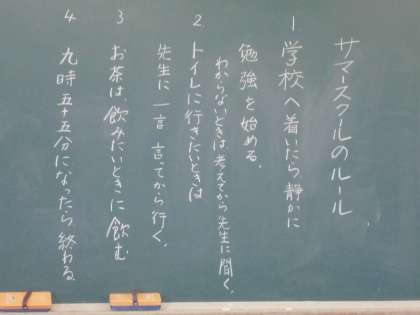 サマースクールのルール
1 学校へ着いたら静かに
勉強を始める。
わからないときは、考えてから先生に聞く。
2 トイレに行きたいときは
先生に一言言ってから行く。
3 お茶は、飲みたいときに飲む
4 九時五十五分になったら終わる